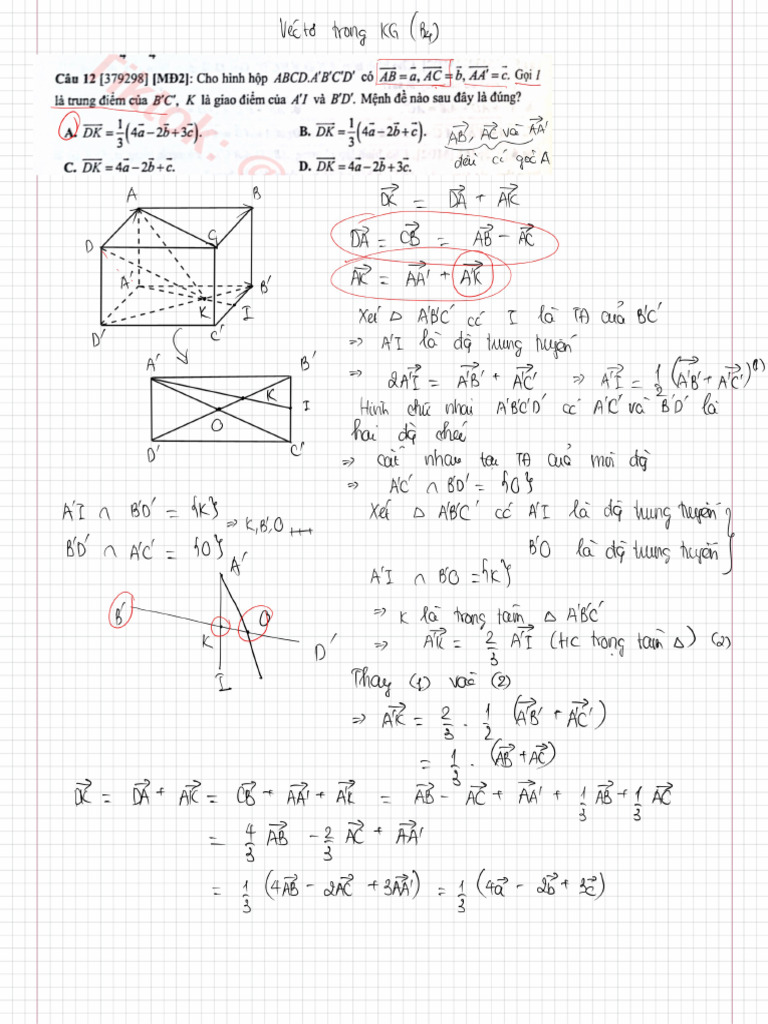 Véctơ trong KG (B4)
Câu 12 [379298] [MĐ2]: Cho hình hộp ABCD.A'B'C'D' có \overrightarrow{AB} = \vec{a}, \overrightarrow{AC} = \vec{b}, \overrightarrow{AA'} = \vec{c}. Gọi I
là trung điểm của B'C', K là giao điểm của A'I và B'D'. Mệnh đề nào sau đây là đúng?
A. \overrightarrow{DK} = \frac{1}{3}(4\vec{a} − 2\vec{b} + 3\vec{c}). B. \overrightarrow{DK} = \frac{1}{3}(4\vec{a} − 2\vec{b} + \vec{c}).
C. \overrightarrow{DK} = 4\vec{a} − 2\vec{b} + \vec{c}. D. \overrightarrow{DK} = 4\vec{a} − 2\vec{b} + 3\vec{c}.
Tiktok: @
\overrightarrow{AB}, \overrightarrow{AC} và \overrightarrow{AA'}
đều có gốc A
A B
D C
A' B'
K I
D' C'
\overrightarrow{DK} = \overrightarrow{DA} + \overrightarrow{AK}
\overrightarrow{DA} = \overrightarrow{CB} = \overrightarrow{AB} − \overrightarrow{AC}
\overrightarrow{AK} = \overrightarrow{AA'} + \overrightarrow{A'K}
Xét Δ A'B'C' có I là TĐ của B'C'
=> A'I là đg trung tuyến
=> 2\overrightarrow{A'I} = \overrightarrow{A'B'} + \overrightarrow{A'C'} => \overrightarrow{A'I} = \frac{1}{2}(\overrightarrow{A'B'} + \overrightarrow{A'C'}) (1)
A' B'
K
I
O
D' C'
Hình chữ nhật A'B'C'D' có A'C' và B'D' là
hai đg chéo
=> cắt nhau tại TĐ của mỗi đg
=> A'C' ∩ B'D' = {O}
A'I ∩ B'D' = {K}
B'D' ∩ A'C' = {O}
=> K, B', O
Xét Δ A'B'C' có A'I là đg trung tuyến
B'O là đg trung tuyến
A'I ∩ B'O = {K}
=> K là trọng tâm Δ A'B'C'
=> \overrightarrow{A'K} = \frac{2}{3} \overrightarrow{A'I} (t/c trọng tâm Δ) (2)
A'
B' O
K D'
I
Thay (1) vào (2)
=> \overrightarrow{A'K} = \frac{2}{3} . \frac{1}{2} (\overrightarrow{A'B'} + \overrightarrow{A'C'})
= \frac{1}{3} . (\overrightarrow{AB} + \overrightarrow{AC})
\overrightarrow{DK} = \overrightarrow{DA} + \overrightarrow{AK} = \overrightarrow{CB} + \overrightarrow{AA'} + \overrightarrow{A'K} = \overrightarrow{AB} − \overrightarrow{AC} + \overrightarrow{AA'} + \frac{1}{3} \overrightarrow{AB} + \frac{1}{3} \overrightarrow{AC}
= \frac{4}{3} \overrightarrow{AB} − \frac{2}{3} \overrightarrow{AC} + \overrightarrow{AA'}
= \frac{1}{3} (4\overrightarrow{AB} − 2\overrightarrow{AC} + 3\overrightarrow{AA'}) = \frac{1}{3} (4\vec{a} − 2\vec{b} + 3\vec{c})